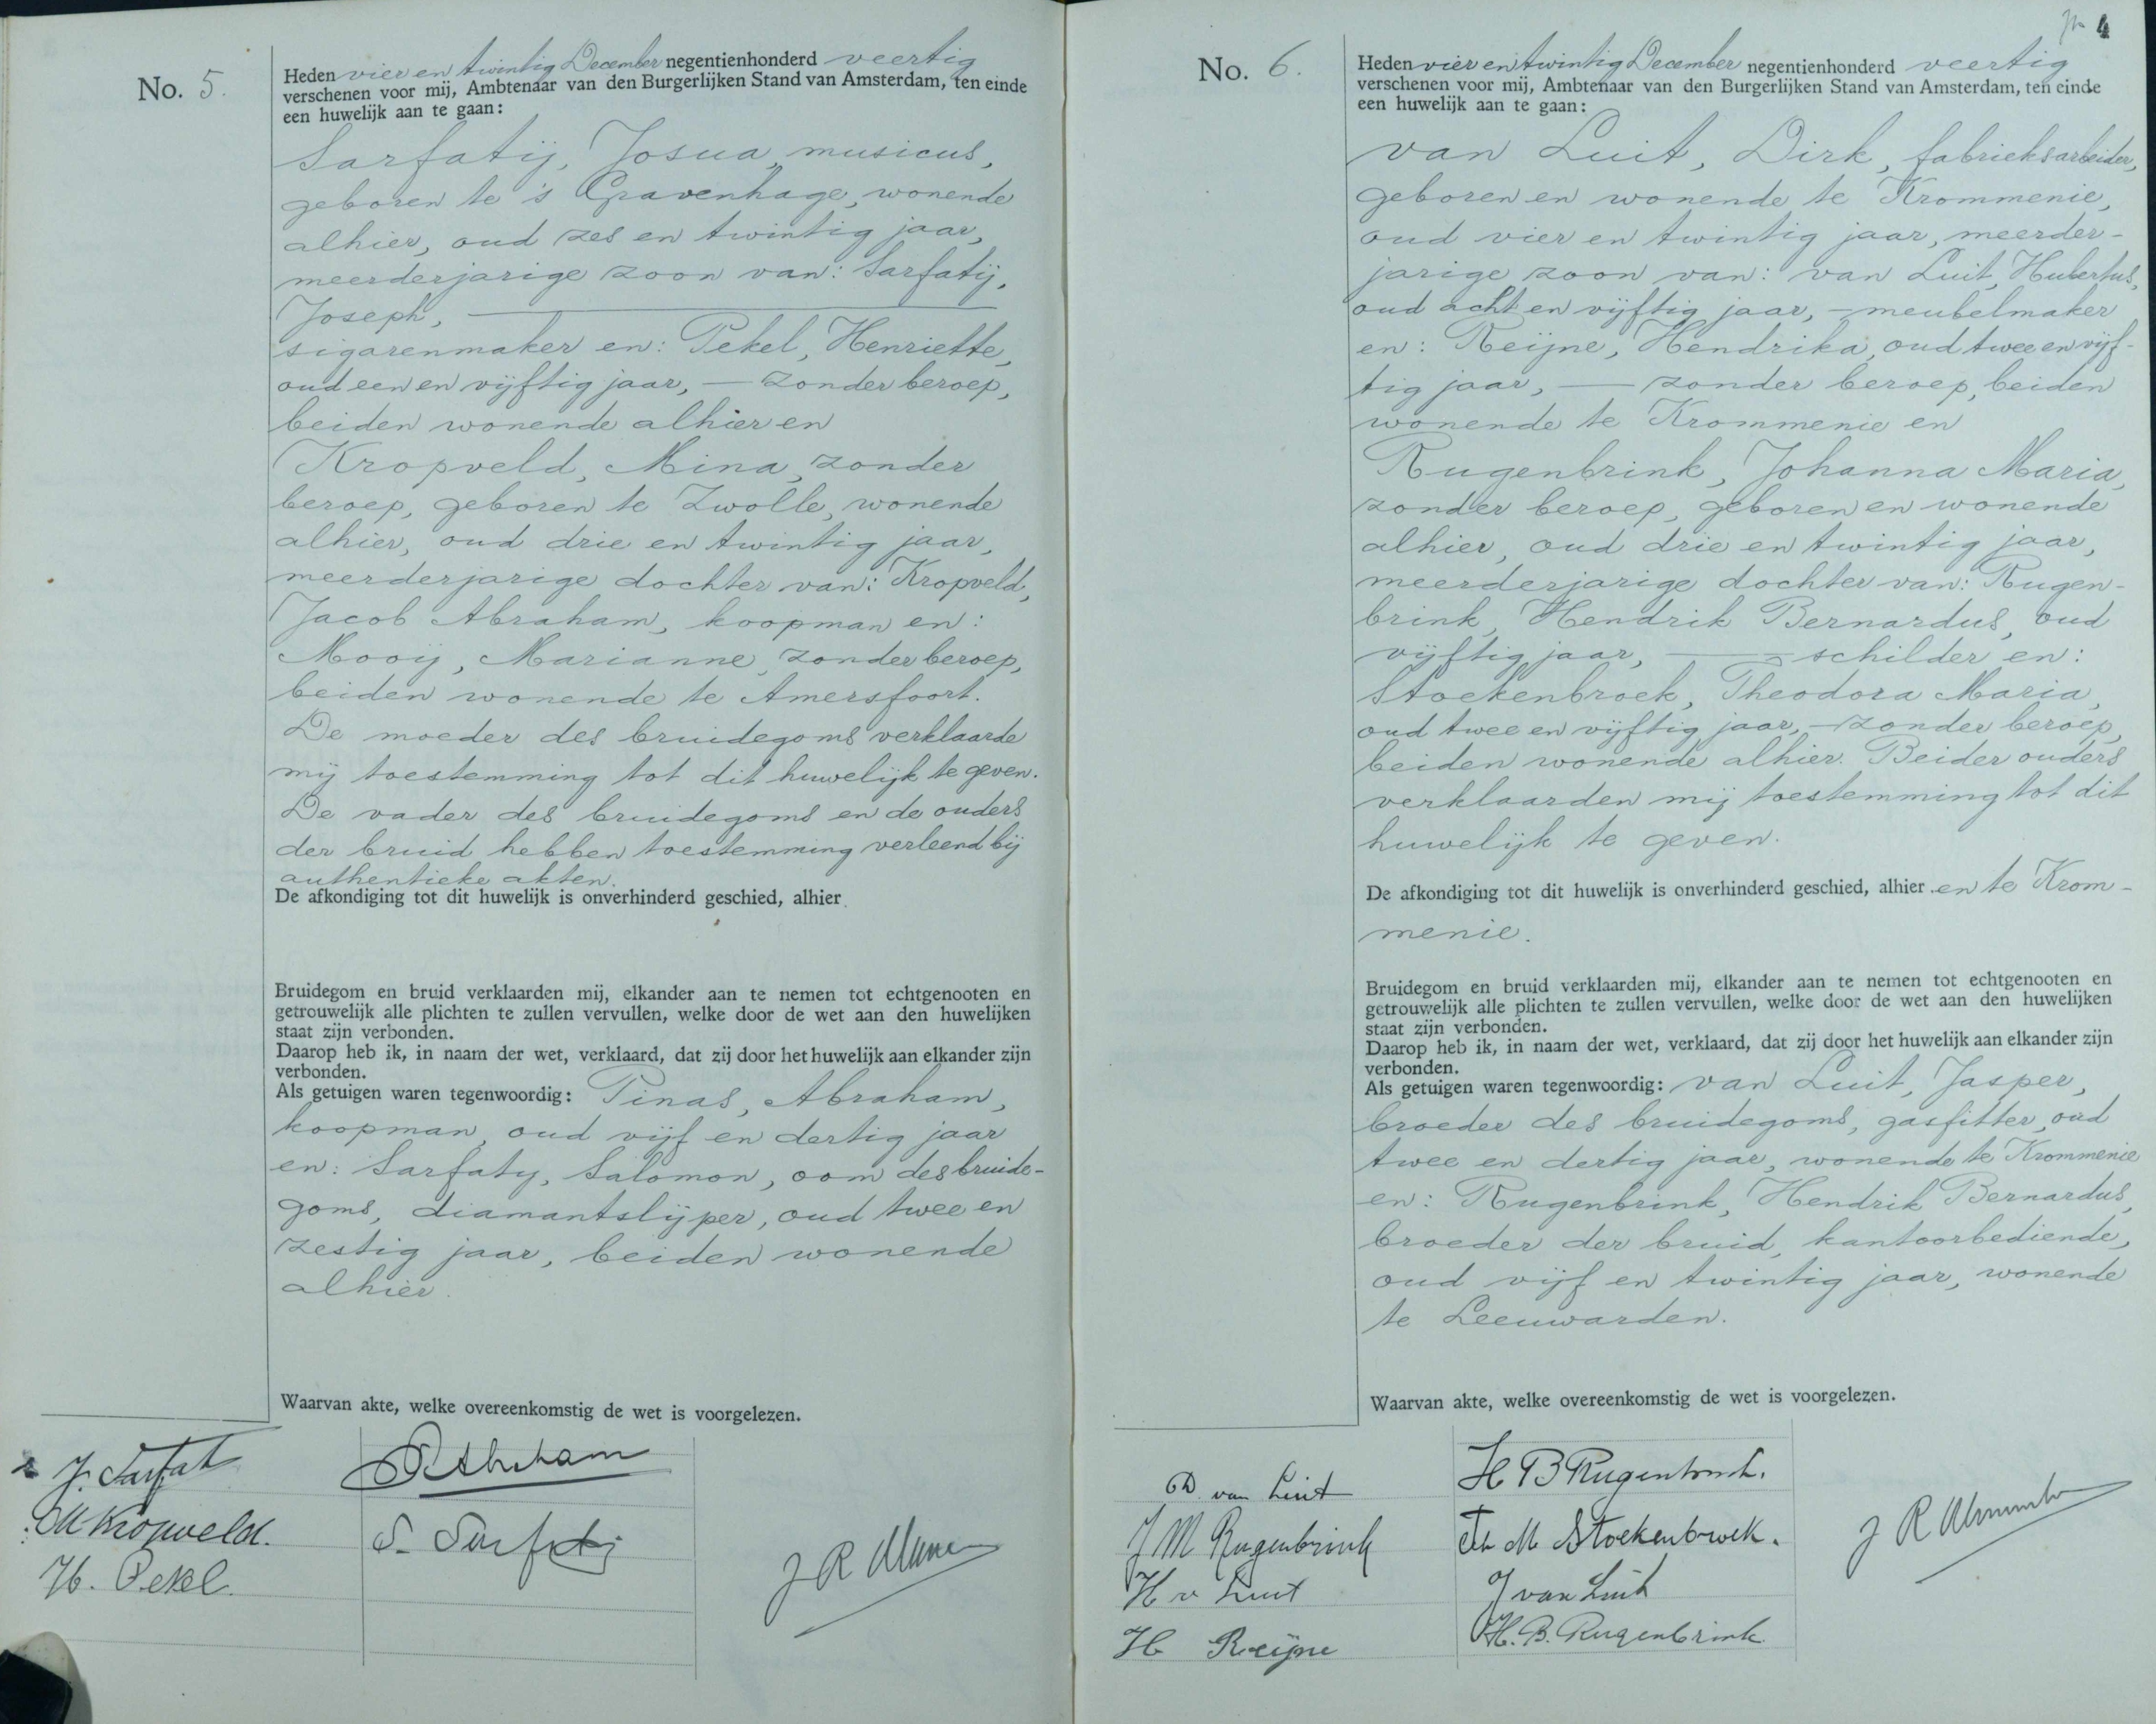 No. 5.
Heden vier en twintig December negentienhonderd veertig
verschenen voor mij, Ambtenaar van den Burgerlijken Stand van Amsterdam, ten einde
een huwelijk aan te gaan:
Sarfatij, Josua, musicus,
geboren te 's Gravenhage, wonende
alhier, oud zes en twintig jaar,
meerderjarige zoon van: Sarfatij,
Joseph,
sigarenmaker en: Pekel, Henriette,
oud een en vijftig jaar, — zonder beroep,
beiden wonende alhier en
Kropveld, Mina, zonder
beroep, geboren te Zwolle, wonende
alhier, oud drie en twintig jaar,
meerderjarige dochter van: Kropveld,
Jacob Abraham, koopman en:
Mooij, Marianne, zonder beroep,
beiden wonende te Amersfoort.
De moeder des bruidegoms verklaarde
mij toestemming tot dit huwelijk te geven.
De vader des bruidegoms en de ouders
der bruid hebben toestemming verleend bij
authentieke akten.
De afkondiging tot dit huwelijk is onverhinderd geschied, alhier.
Bruidegom en bruid verklaarden mij, elkander aan te nemen tot echtgenooten en
getrouwelijk alle plichten te zullen vervullen, welke door de wet aan den huwelijken
staat zijn verbonden.
Daarop heb ik, in naam der wet, verklaard, dat zij door het huwelijk aan elkander zijn
verbonden.
Als getuigen waren tegenwoordig: Pinas, Abraham,
koopman, oud vijf en dertig jaar
en: Sarfaty, Salomon, oom des bruide-
goms, diamantslijper, oud twee en
zestig jaar, beiden wonende
alhier.
Waarvan akte, welke overeenkomstig de wet is voorgelezen.
J. Sarfat
M Kropveld.
H. Pekel.
S. Sarfatij
J R
4
No. 6.
Heden vier en twintig December negentienhonderd veertig
verschenen voor mij, Ambtenaar van den Burgerlijken Stand van Amsterdam, ten einde
een huwelijk aan te gaan:
van Luit, Dirk, fabrieksarbeider,
geboren en wonende te Krommenie,
oud vier en twintig jaar, meerder-
jarige zoon van: van Luit, Hubertus,
oud acht en vijftig jaar, — meubelmaker
en: Reijne, Hendrika, oud twee en vijf-
tig jaar, — zonder beroep, beiden
wonende te Krommenie en
Rugenbrink, Johanna Maria,
zonder beroep, geboren en wonende
alhier, oud drie en twintig jaar,
meerderjarige dochter van: Rugen-
brink, Hendrik Bernardus, oud
vijftig jaar, — schilder en:
Stoekenbroek, Theodora Maria,
oud twee en vijftig jaar, — zonder beroep,
beiden wonende alhier. Beider ouders
verklaarden mij toestemming tot dit
huwelijk te geven.
De afkondiging tot dit huwelijk is onverhinderd geschied, alhier en te Krom-
menie.
Bruidegom en bruid verklaarden mij, elkander aan te nemen tot echtgenooten en
getrouwelijk alle plichten te zullen vervullen, welke door de wet aan den huwelijken
staat zijn verbonden.
Daarop heb ik, in naam der wet, verklaard, dat zij door het huwelijk aan elkander zijn
verbonden.
Als getuigen waren tegenwoordig: van Luit, Jasper,
broeder des bruidegoms, gasfitter, oud
twee en dertig jaar, wonende te Krommenie
en: Rugenbrink, Hendrik Bernardus,
broeder der bruid, kantoorbediende,
oud vijf en twintig jaar, wonende
te Leeuwarden.
Waarvan akte, welke overeenkomstig de wet is voorgelezen.
D. van Luit
J M Rugenbrink
H v Luit
H Reijne
H B Rugenbrink.
Th M Stoekenbroek.
J van Luit
H. B. Rugenbrink
J R